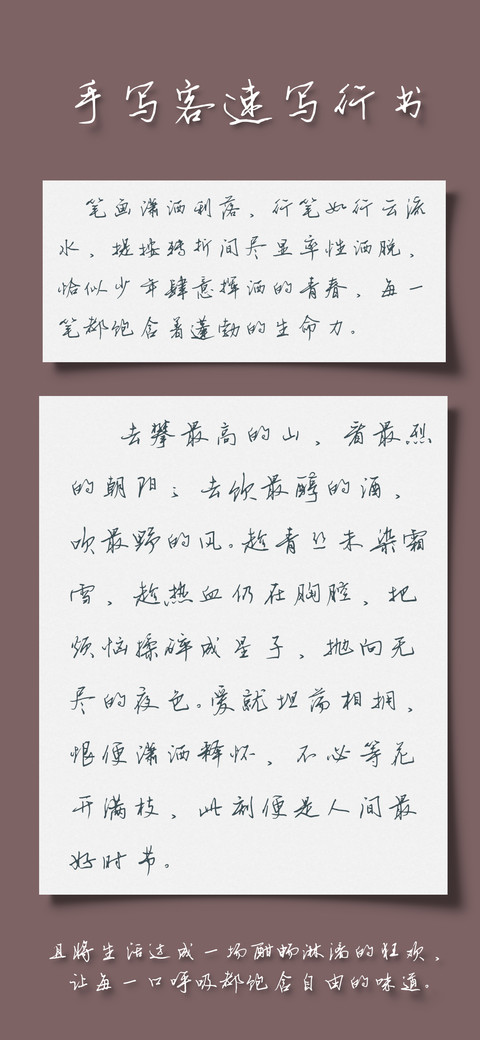 手写客速写行书
笔画潇洒利落，行笔如行云流
水，提按转折间尽显率性洒脱，
恰似少年肆意挥洒的青春，每一
笔都饱含着蓬勃的生命力。
去攀最高的山，看最烈
的朝阳；去饮最醇的酒，
吹最野的风。趁青丝未染霜
雪，趁热血仍在胸腔，把
烦恼揉碎成星子，抛向无
尽的夜色。爱就坦荡相拥，
恨便潇洒释怀，不必等花
开满枝，此刻便是人间最
好时节。
且将生活过成一场酣畅淋漓的狂欢，
让每一口呼吸都饱含自由的味道。